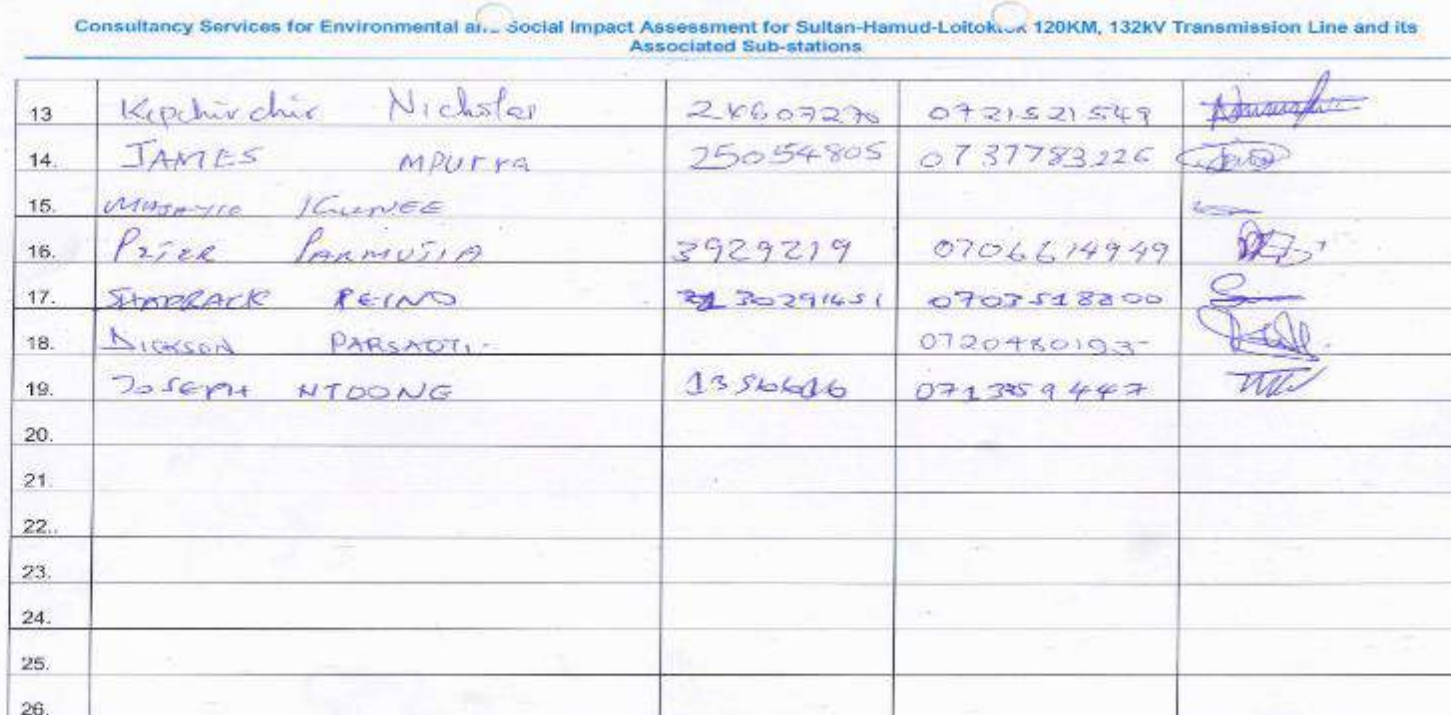 Consultancy Services for Environmental an Social Impact Assessment for Sultan-Hamud-Loitok 120KM, 132kV Transmission Line and its
Associated Sub-stations
13 Kipchirchir Nicholas 24607270 0721521549
14. JAMES 25054805 0737783226
15.
16. PETER 3929219 0706614949
17. SHADRACK 30291651 0707518800
18. DICKSON PARSAOTI 0720480193
19. JOSEPH NTOONG
20.
21.
22..
23.
24.
25.
26.